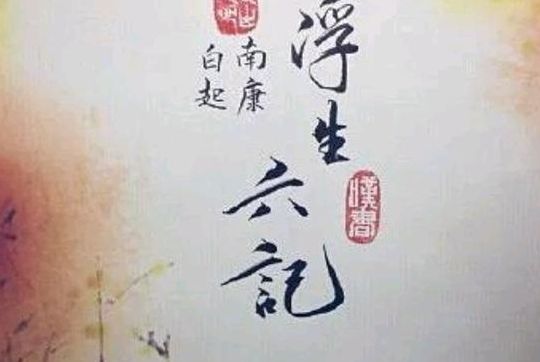 浮生六記
南康
白起